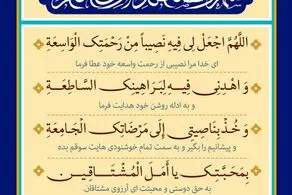 اللَّهُمَّ اجْعَلْ لِی فِیهِ نَصِیباً مِنْ رَحْمَتِکَ الْوَاسِعَةِ
ای خدا مرا نصیبی از رحمت واسعه خود عطا فرما
وَ اهْدِنِی فِیهِ لِبَرَاهِینِکَ السَّاطِعَةِ
و به ادله روشن خود هدایت فرما
وَ خُذْ بِنَاصِیَتِی إِلَی مَرْضَاتِکَ الْجَامِعَةِ
و پیشانیم را بگیر و به سمت تمام خوشنودی هایت سوقم بده
بِمَحَبَّتِکَ یَا أَمَلَ الْمُشْتَاقِینَ
به حق دوستی و محبتت ای آرزوی مشتاقان.